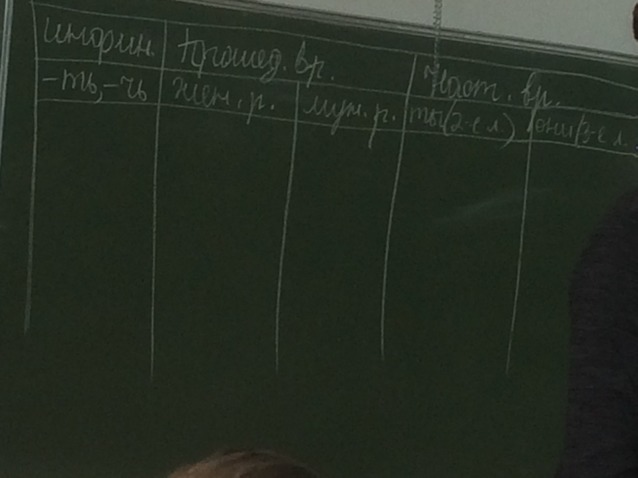 инфин. Прошед. вр. Наст. вр.
-ть, -чь жен. р. муж. р. ты(2-е л.) они(3-е л.